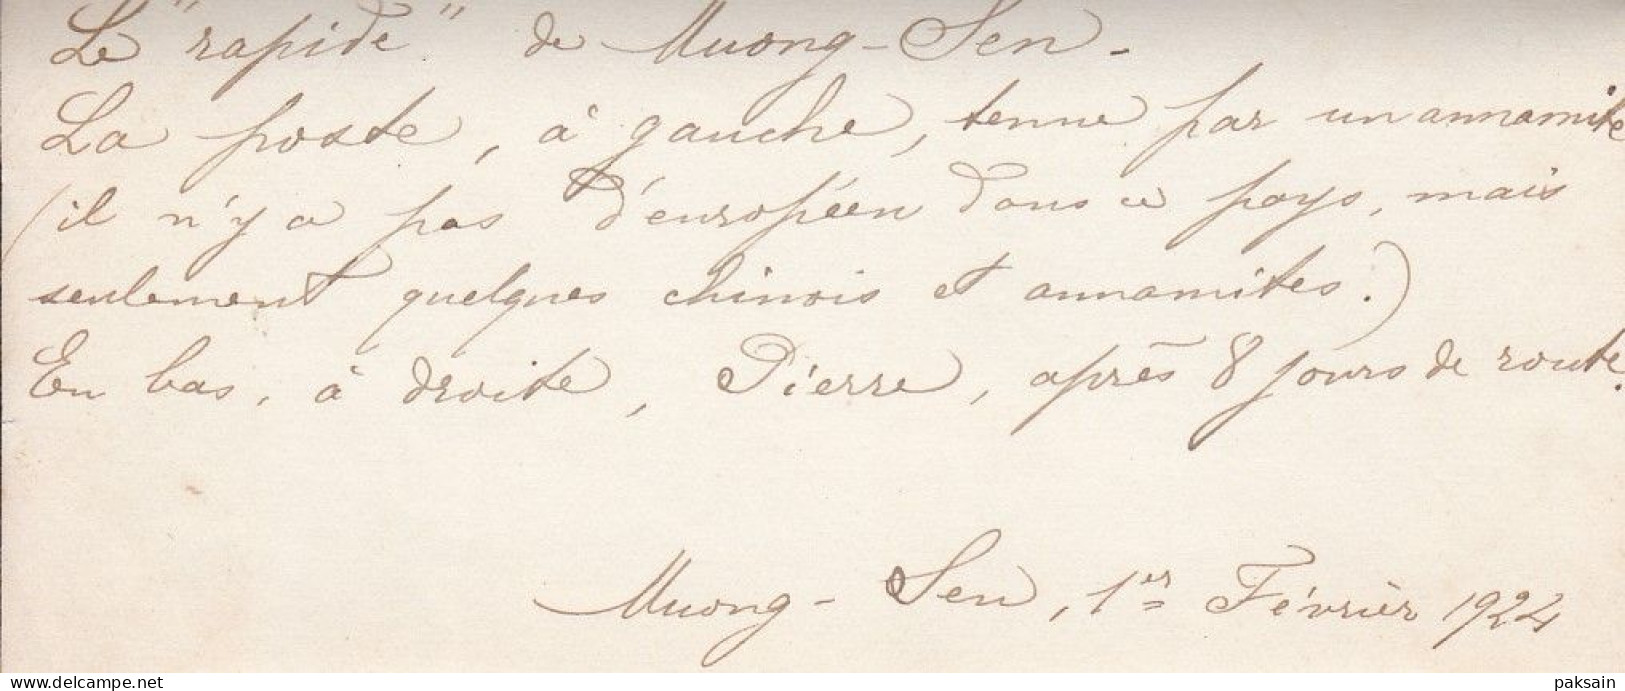 Le "rapide" de Muong-Sen -
La poste, à gauche, tenue par un annamite
(il n'y a pas d'européen dans ce pays, mais
seulement quelques chinois et annamites.)
En bas, à droite, Pierre, après 8 jours de route.
Muong-Sen, 1er Février 1924
www.delcampe.net
paksain